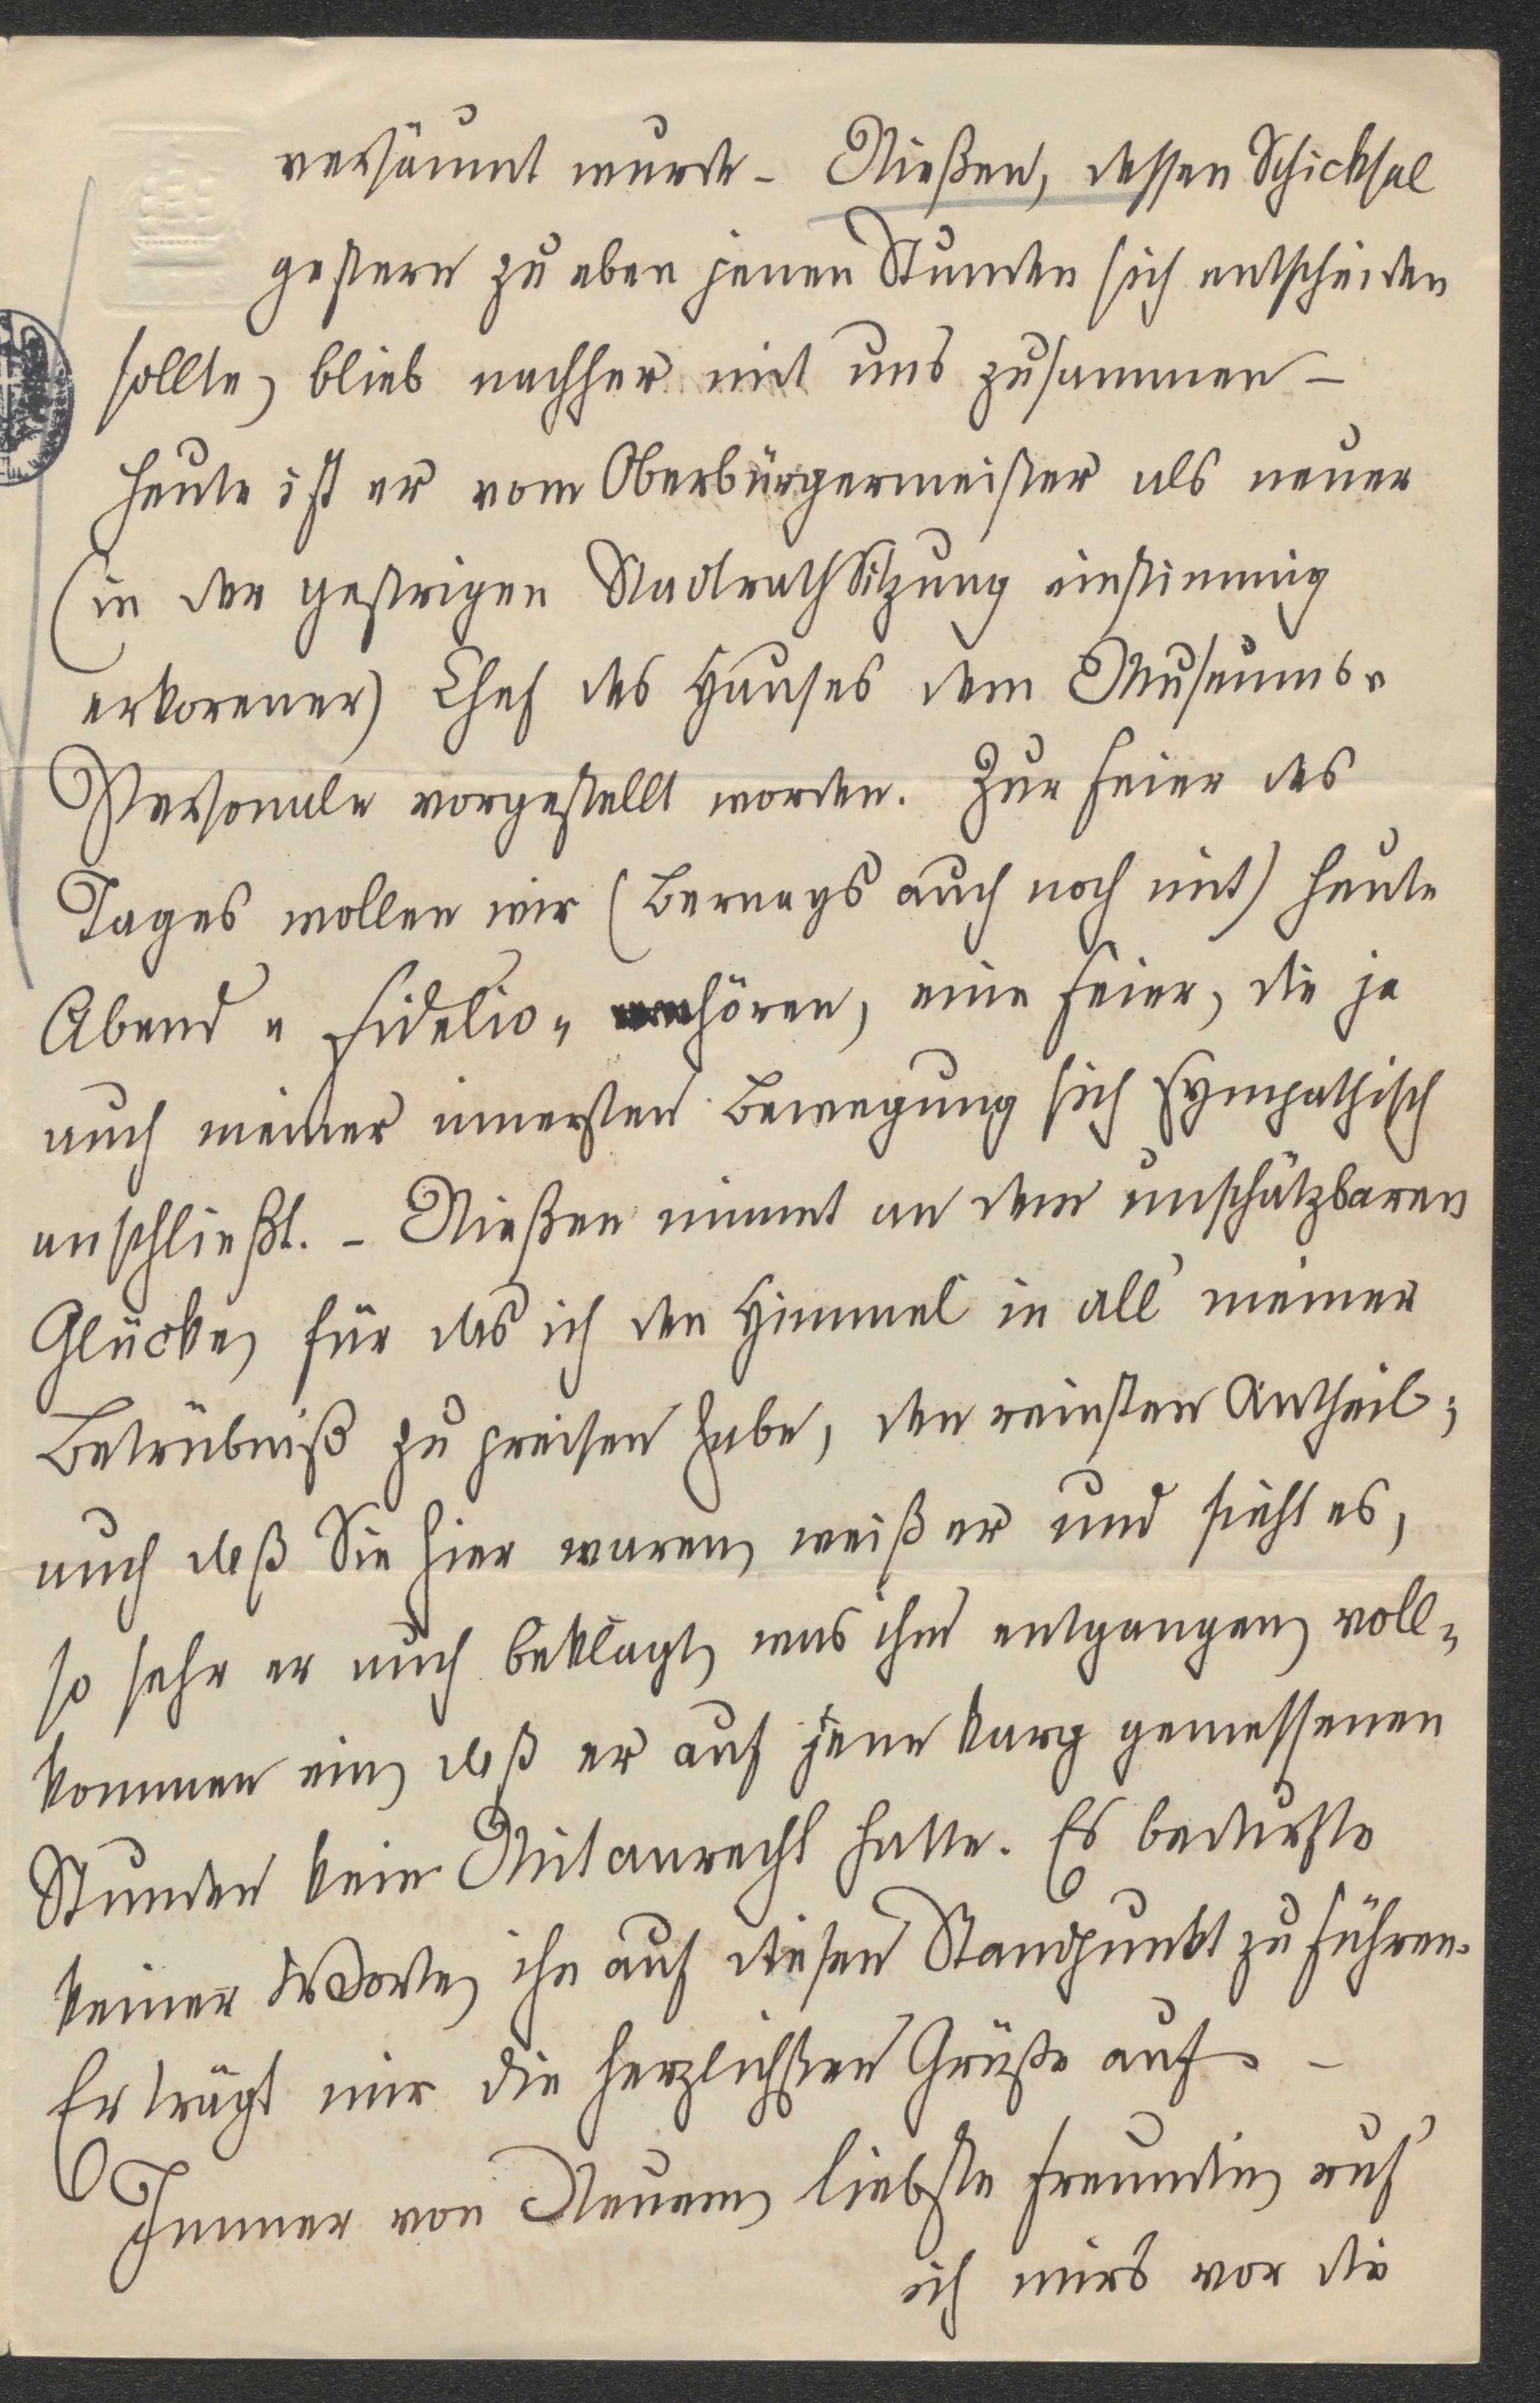 versäumt wurde – Nießen, dessen Schicksal
gestern zu eben jenen Stunden sich entscheiden
sollte, blieb nachher mit uns zusammen –
heute ist er vom Oberbürgermeister als neuer
(in der gestrigen Stadtrathsitzung einstimmig
erkorener) Chef des Hauses dem Museums-
Personale vorgestellt worden. Zur Feier des
Tages wollen wir (Bernays auch noch mit) heute
Abend „Fidelio“ hören, eine Feier, die ja
auch meiner innersten Bewegung sich sympathisch
anschließt. – Nießen nimmt an dem unschätzbaren
Glücke, für das ich den Himmel in all' meiner
Betrübniß zu preisen habe, den reinsten Antheil;
auch daß Sie hier waren, weiß er und sieht es,
so sehr er auch beklagt, was ihm entgangen, voll-
kommen ein, daß er auf jene karg gemessenen
Stunden kein Mitanrecht hatte. Es bedurfte
keiner Worte, ihn auf diesen Standpunkt zu führen.
Er trägt mir die herzlichsten Grüße auf. –
Immer von Neuem, liebste Freundin, ruf'
ich mirs vor die